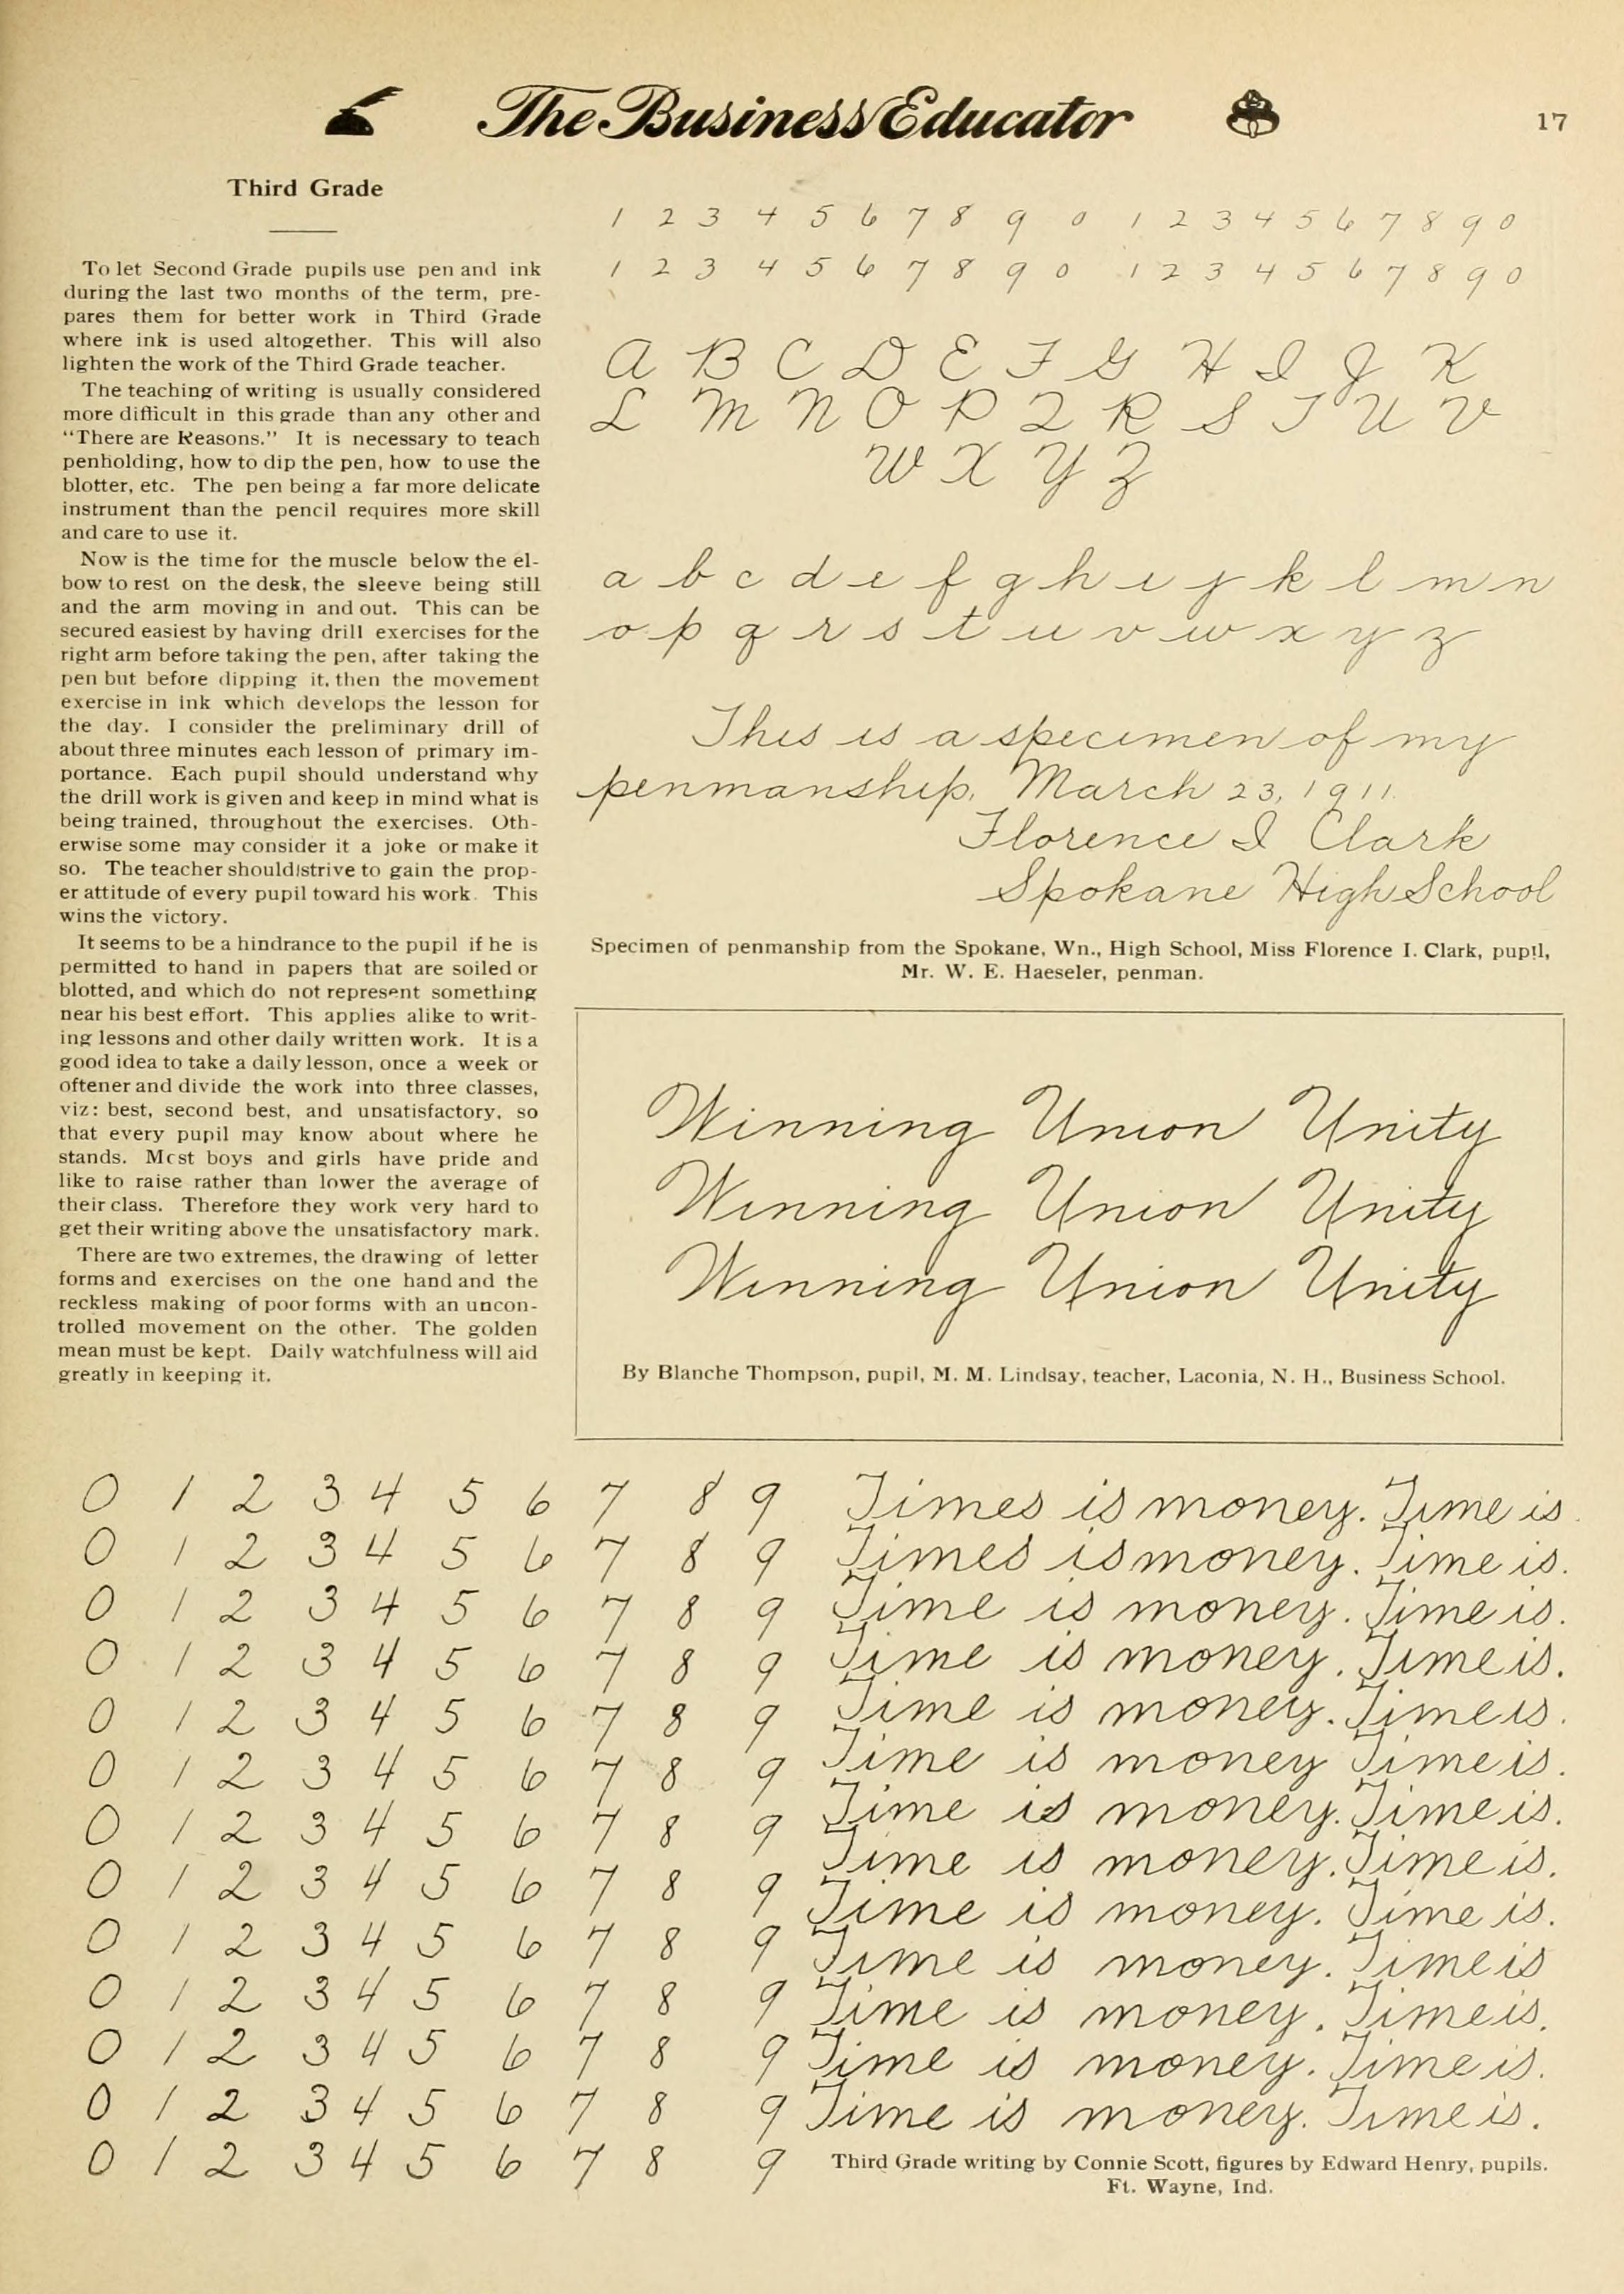 The Business Educator
17
Third Grade
To let Second Grade pupils use pen and ink
during the last two months of the term, pre-
pares them for better work in Third Grade
where ink is used altogether. This will also
lighten the work of the Third Grade teacher.
The teaching of writing is usually considered
more difficult in this grade than any other and
"There are Reasons." It is necessary to teach
penholding, how to dip the pen, how to use the
blotter, etc. The pen being a far more delicate
instrument than the pencil requires more skill
and care to use it.
Now is the time for the muscle below the el-
bow to rest on the desk, the sleeve being still
and the arm moving in and out. This can be
secured easiest by having drill exercises for the
right arm before taking the pen, after taking the
pen but before dipping it, then the movement
exercise in ink which develops the lesson for
the day. I consider the preliminary drill of
about three minutes each lesson of primary im-
portance. Each pupil should understand why
the drill work is given and keep in mind what is
being trained, throughout the exercises. Oth-
erwise some may consider it a joke or make it
so. The teacher should strive to gain the prop-
er attitude of every pupil toward his work. This
wins the victory.
It seems to be a hindrance to the pupil if he is
permitted to hand in papers that are soiled or
blotted, and which do not represent something
near his best effort. This applies alike to writ-
ing lessons and other daily written work. It is a
good idea to take a daily lesson, once a week or
oftener and divide the work into three classes,
viz: best, second best, and unsatisfactory, so
that every pupil may know about where he
stands. Most boys and girls have pride and
like to raise rather than lower the average of
their class. Therefore they work very hard to
get their writing above the unsatisfactory mark.
There are two extremes, the drawing of letter
forms and exercises on the one hand and the
reckless making of poor forms with an uncon-
trolled movement on the other. The golden
mean must be kept. Daily watchfulness will aid
greatly in keeping it.
1 2 3 4 5 6 7 8 9 0 1 2 3 4 5 6 7 8 9 0
1 2 3 4 5 6 7 8 9 0 1 2 3 4 5 6 7 8 9 0
A B C D E F G H I J K
L M N O P Q R S T U V
W X Y Z
a b c d e f g h i j k l m n
o p q r s t u v w x y z
This is a specimen of my
penmanship. March 23, 1911.
Florence I Clark
Spokane High School
Specimen of penmanship from the Spokane, Wn., High School, Miss Florence I. Clark, pupil,
Mr. W. E. Haeseler, penman.
Winning Union Unity
Winning Union Unity
Winning Union Unity
By Blanche Thompson, pupil, M. M. Lindsay, teacher, Laconia, N. H., Business School.
0 1 2 3 4 5 6 7 8 9
0 1 2 3 4 5 6 7 8 9
0 1 2 3 4 5 6 7 8 9
0 1 2 3 4 5 6 7 8 9
0 1 2 3 4 5 6 7 8 9
0 1 2 3 4 5 6 7 8 9
0 1 2 3 4 5 6 7 8 9
0 1 2 3 4 5 6 7 8 9
0 1 2 3 4 5 6 7 8 9
0 1 2 3 4 5 6 7 8 9
0 1 2 3 4 5 6 7 8 9
0 1 2 3 4 5 6 7 8 9
0 1 2 3 4 5 6 7 8 9
Times is money. Time is.
Times is money. Time is.
Time is money. Time is.
Time is money. Time is.
Time is money. Time is.
Time is money Time is.
Time is money. Time is.
Time is money. Time is.
Time is money. Time is.
Time is money. Time is
Time is money. Time is.
Time is money. Time is.
Time is money. Time is.
Third Grade writing by Connie Scott, figures by Edward Henry, pupils.
Ft. Wayne, Ind.